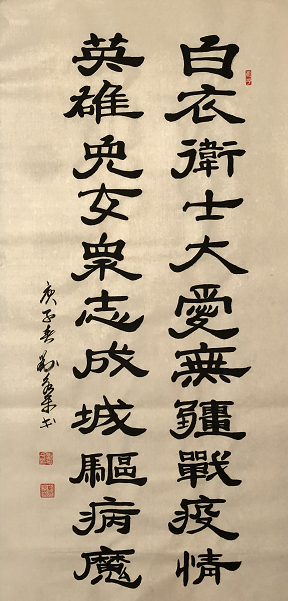 白衣衛士大愛無疆戰疫情
英雄兒女眾志成城驅病魔
庚子春